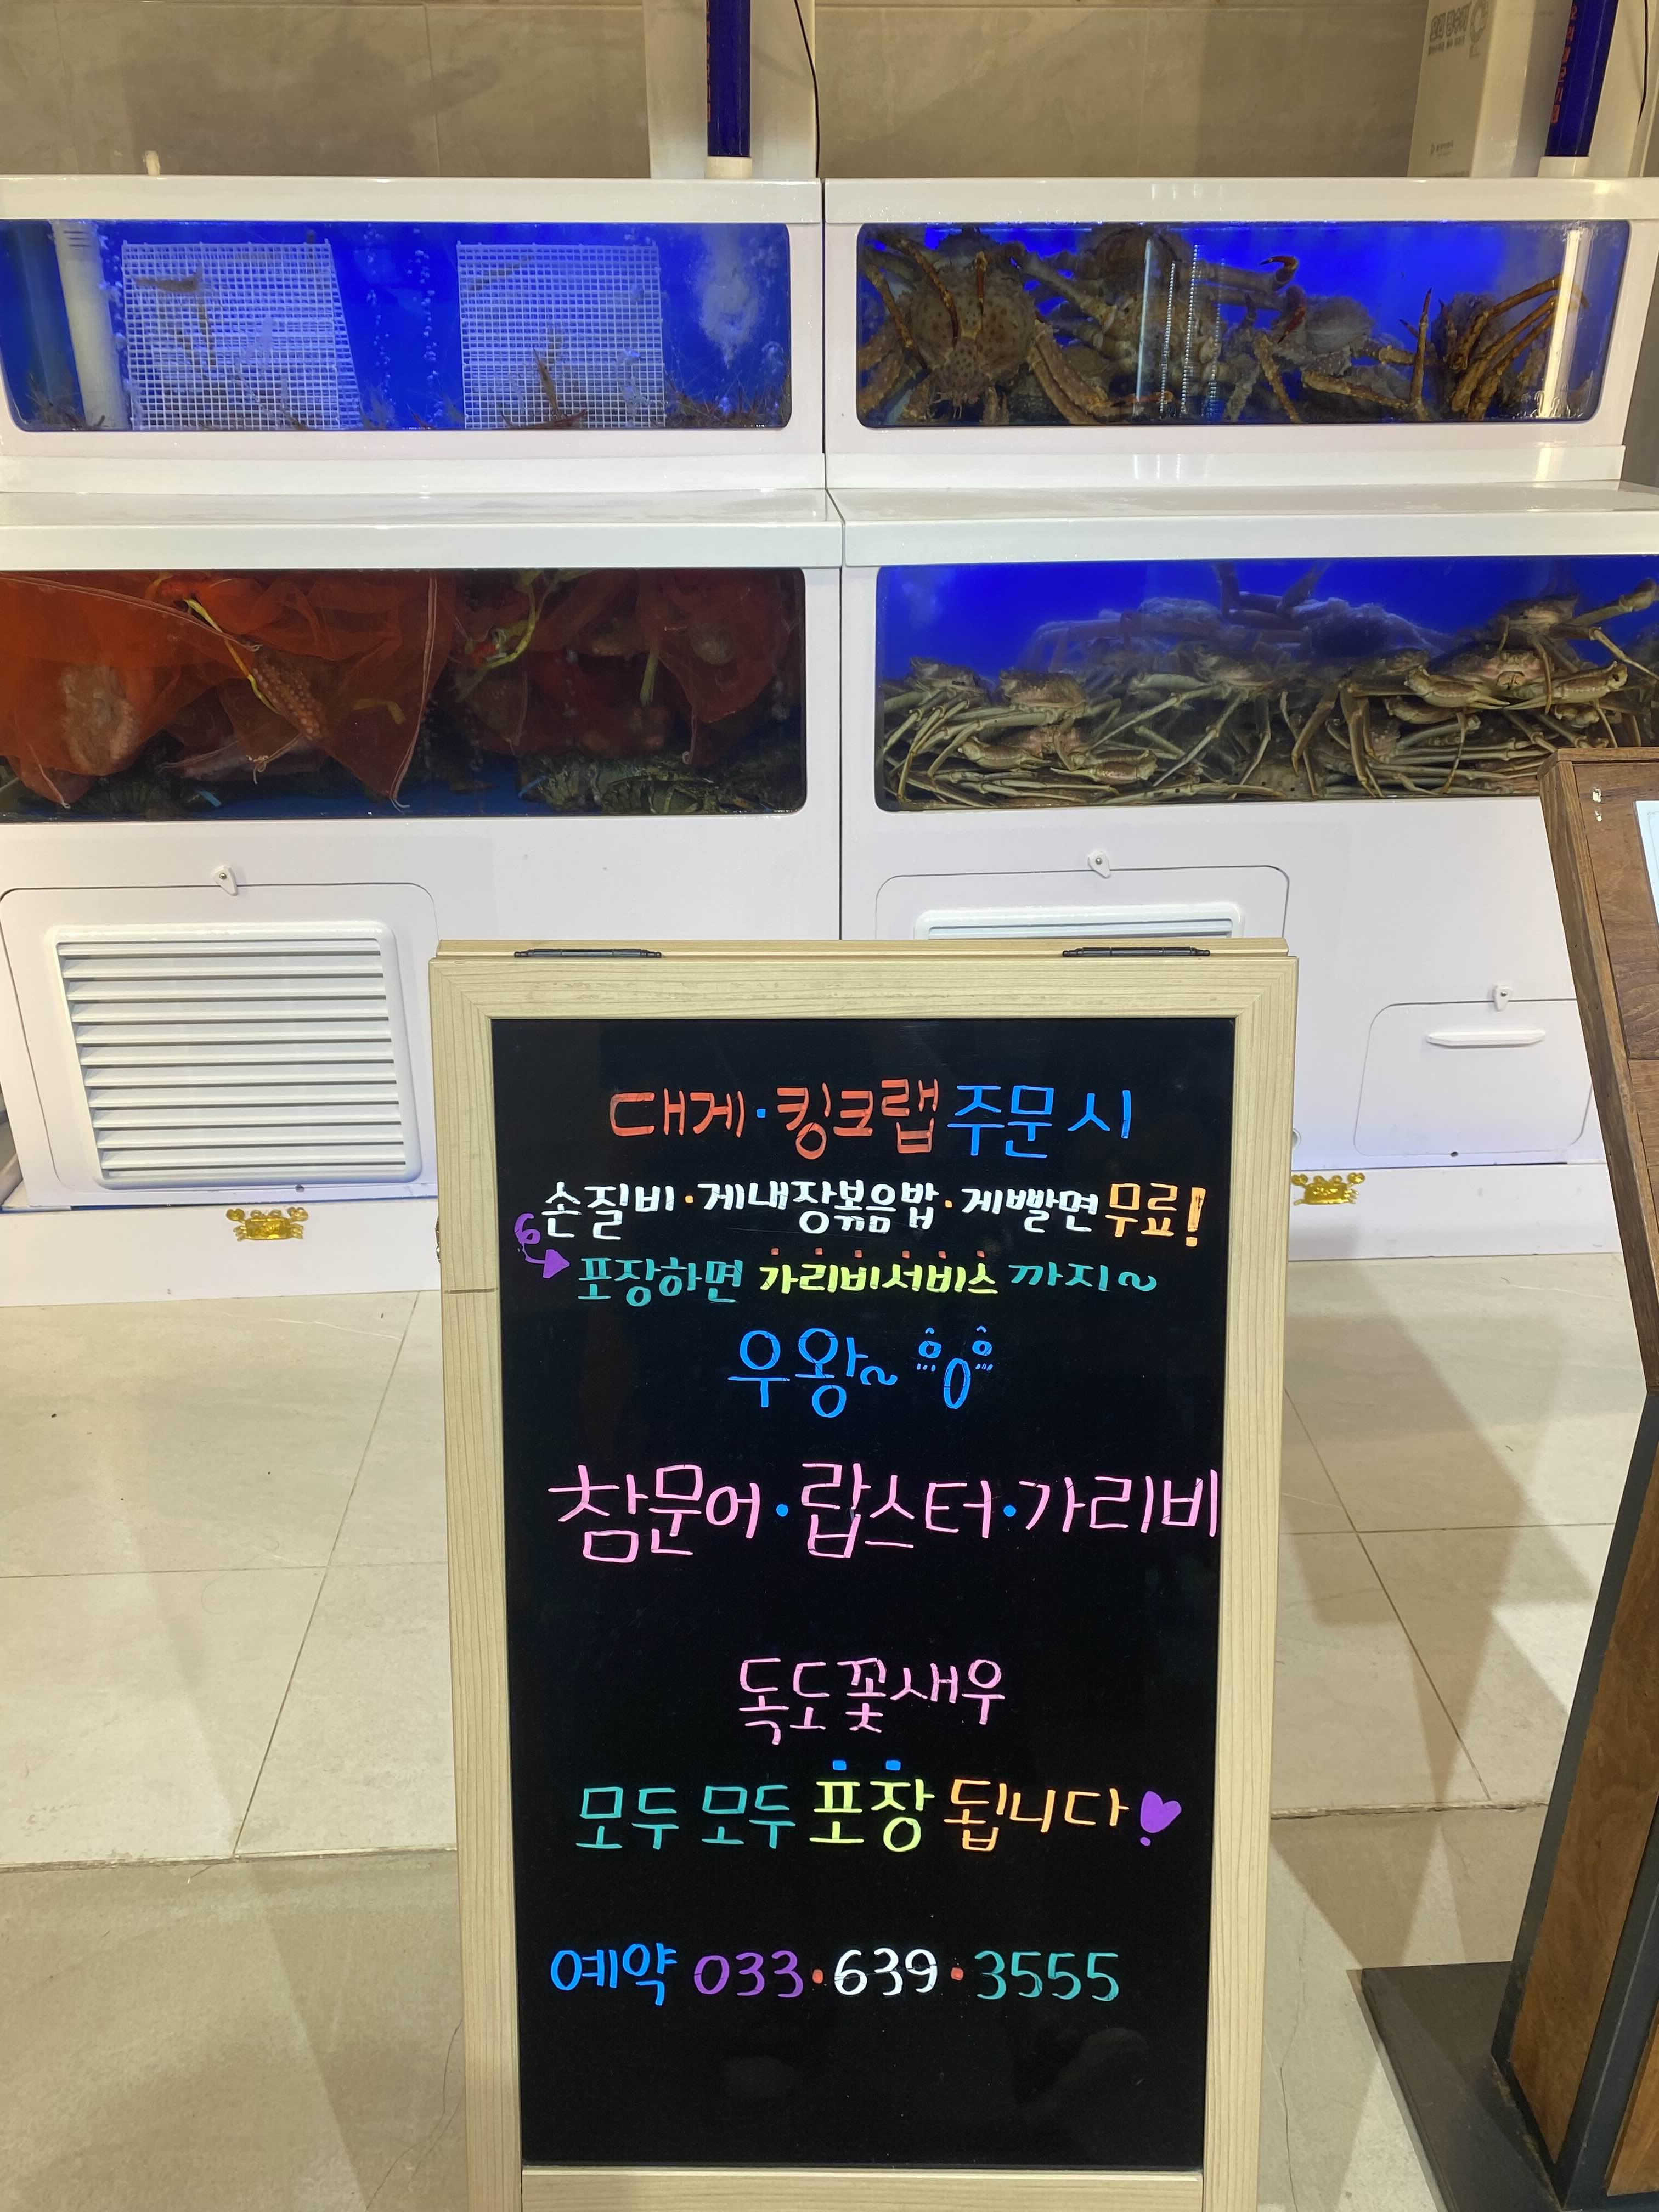 대게·킹크랩 주문 시
손질비·게내장볶음밥·게빨면 무료!
포장하면 가리비서비스 까지~
우왕~
참문어·랍스터·가리비
독도꽃새우
모두 모두 포장 됩니다
예약 033·639·3555